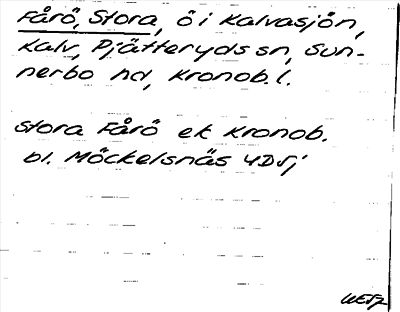 Fårö, Stora, ö i Kalvasjön,
Kalv, Pjätteryds sn, Sun-
nerbo hd, Kronob. l.
Stora Fårö ek Kronob.
bl. Möckelsnäs 4D5j